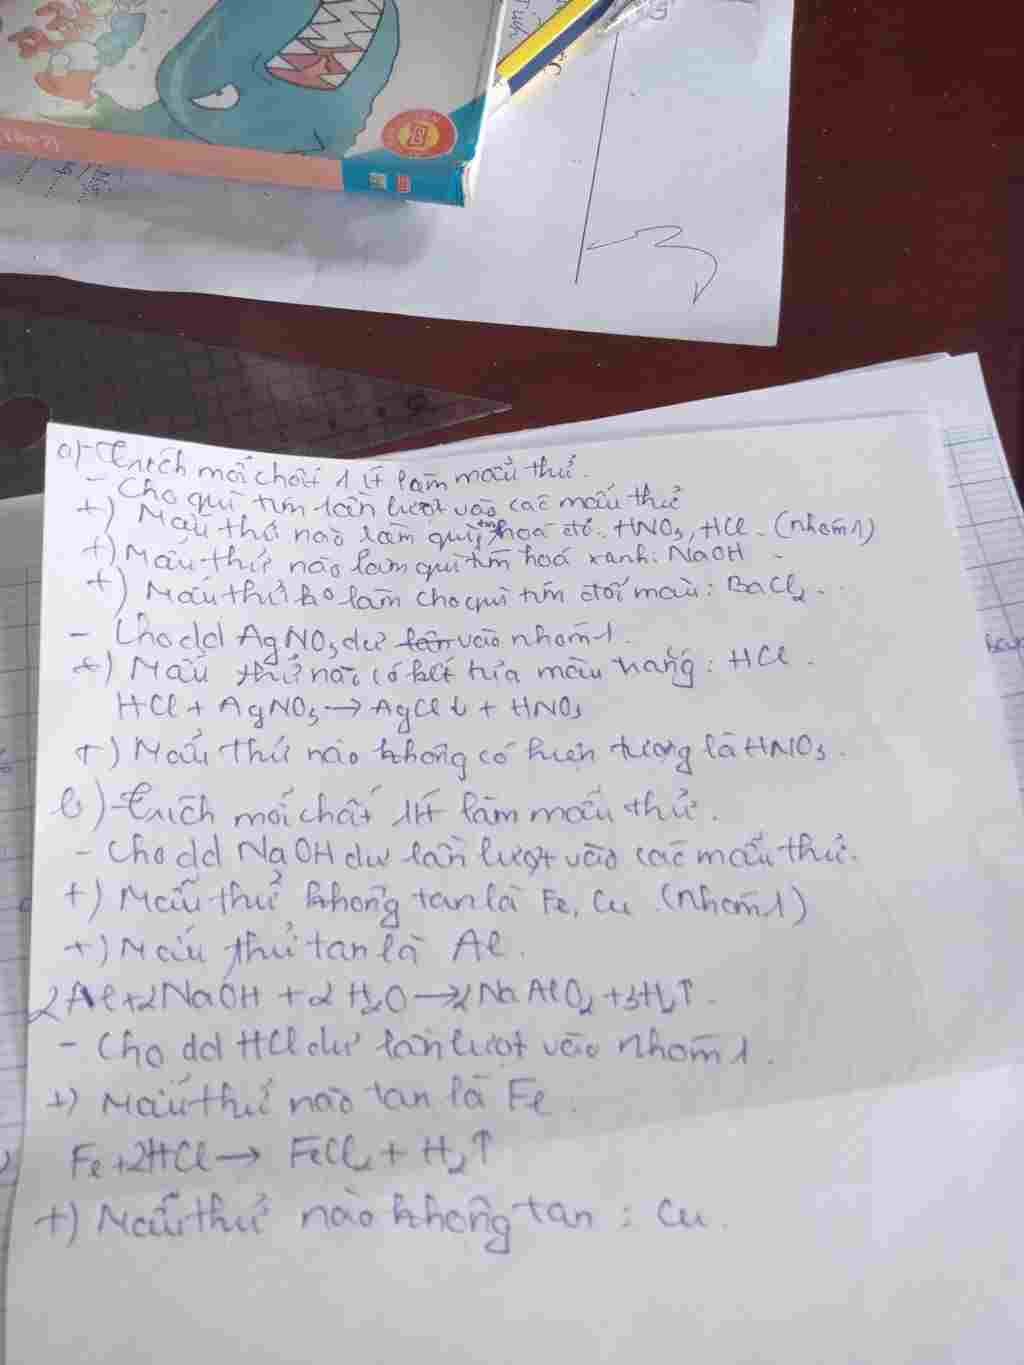 a) - Trích mỗi chất 1 ít làm mẫu thử.
- Cho quì tím lần lượt vào các mẫu thử
+) Mẫu thử nào làm quì tím hoá đỏ: HNO3, HCl. (nhóm 1)
+) Mẫu thử nào làm quì tím hoá xanh: NaOH
+) Mẫu thử ko làm cho quì tím đổi màu: BaCl2.
- Cho dd AgNO3 dư vào nhóm 1.
+) Mẫu thử nào có kết tủa màu trắng: HCl.
HCl + AgNO3 → AgCl ↓ + HNO3
+) Mẫu thử nào không có hiện tượng là HNO3.
b) - Trích mỗi chất 1 ít làm mẫu thử.
- Cho dd NaOH dư lần lượt vào các mẫu thử.
+) Mẫu thử không tan là Fe, Cu (nhóm 1)
+) Mẫu thử tan là Al.
2Al + 2NaOH + 2H2O → 2NaAlO2 + 3H2↑.
- Cho dd HCl dư lần lượt vào nhóm 1.
+) Mẫu thử nào tan là Fe.
Fe + 2HCl → FeCl2 + H2↑
+) Mẫu thử nào không tan: Cu.